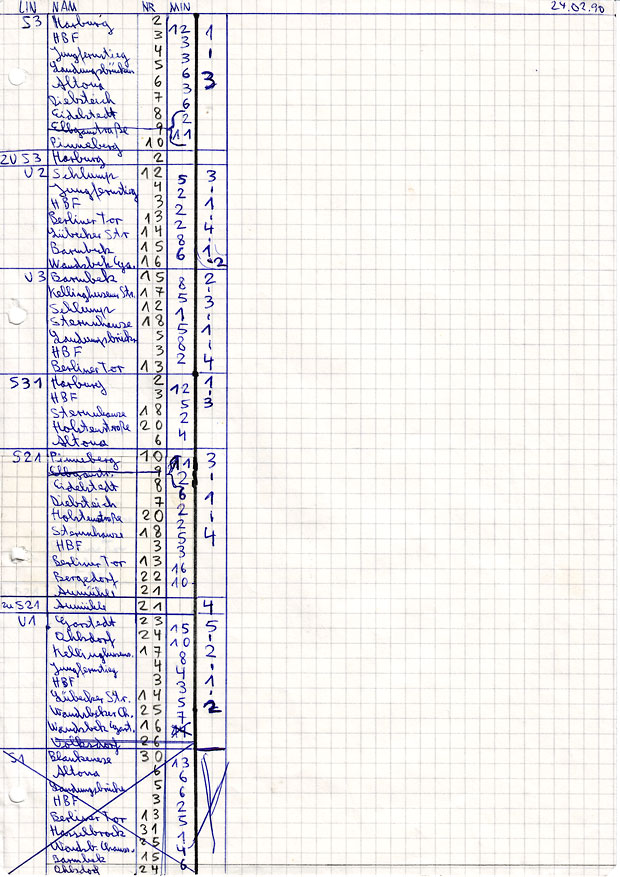 LIN NAM NR MIN 24.02.90
S3 Harburg 2
HBF 3 12 1
Jungfernstieg 4 3 -
Landungsbrücken 5 3 3
Altona 6 6
Diebsteich 7 3
Eidelstedt 8 6
Elbgaustraße 9 2
Pinneberg 10 11
ZU S3 Harburg 2
U2 Schlump 12 5 3
Jungfernstieg 4 2 -
HBF 3 2 1
Berliner Tor 13 2 -
Lübecker Str 14 8 4
Barmbek 15 6 1
Wandsbek Ga. 16 2
U3 Barmbek 15 8 2
Kellinghusen Str. 17 5 3
Schlump 12 1
Sternschanze 18 5 1
Landungsbrück 5 8
HBF 3 2
Berliner Tor 13 4
S31 Harburg 2 12 1
HBF 3 5 3
Sternschanze 18 2
Holstenstraße 20 4
Altona 6
S21 Pinneberg 10 11 3
Elbgaustr. 9 2
Eidelstedt 8 6 1
Diebsteich 7 2
Holstenstraße 20 2 4
Sternschanze 18 5
HBF 3 3
Berliner Tor 13 16
Bergedorf 22 10
Aumühle 21
zu S21 Aumühle 21 4
U1 Garstedt 23 15 5
Ohlsdorf 24 10
Kellinghusens. 17 8 2
Jungfernstieg 4 4
HBF 3 3 1
Lübecker Str. 14 5
Wandsbeker Ch. 25 7 2
Wandsbek Gart. 16
Volksdorf 26
S1 Blankenese 30 13
Altona 6 6
Landungsbrücke 5 6
HBF 3 2
Berliner Tor 13 5
Hasselbrook 31 1
Wandsb. Chauss. 25 4
Barmbek 15 6
Ohlsdorf 24